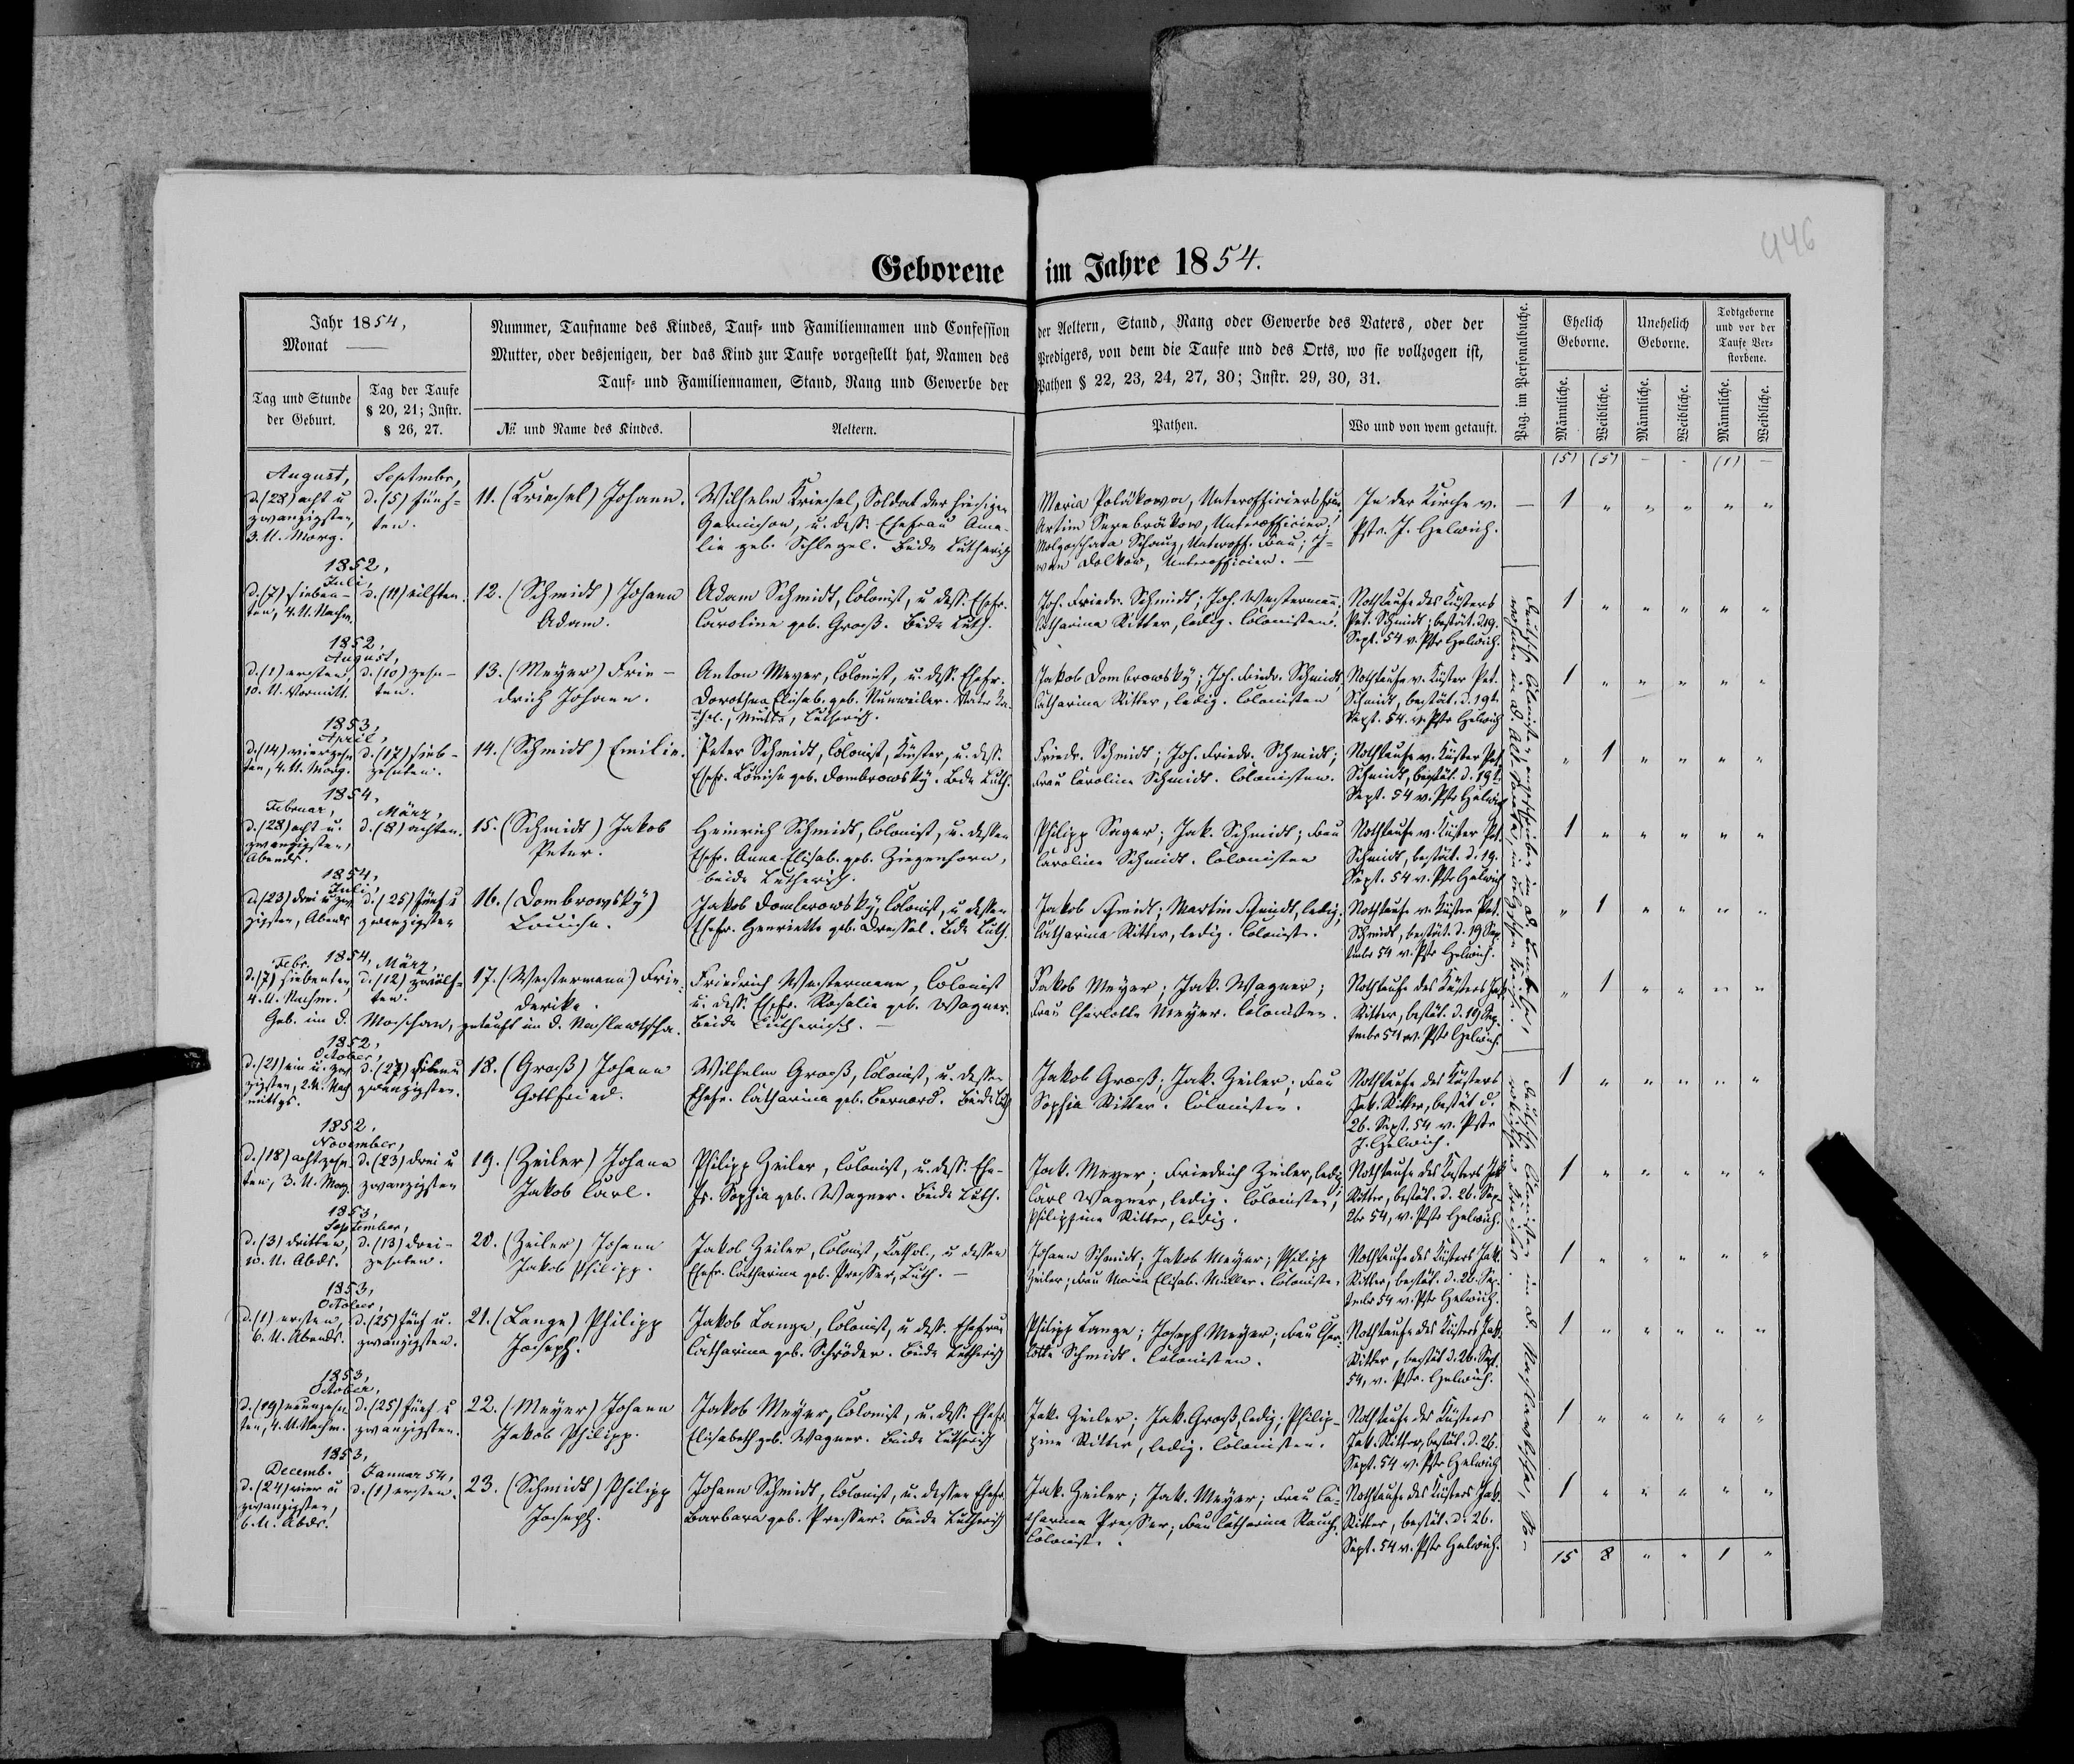 446
Geborene im Jahre 1854.
Jahr 1854,
Monat —
Tag und Stunde der Geburt.
Tag der Taufe § 20, 21; Instr. § 26, 27.
Nummer, Taufname des Kindes, Tauf- und Familiennamen und Confession der Aeltern, Stand, Rang oder Gewerbe des Vaters, oder der
Mutter, oder desjenigen, der das Kind zur Taufe vorgestellt hat, Namen des Predigers, von dem die Taufe und des Orts, wo sie vollzogen ist,
Tauf- und Familiennamen, Stand, Rang und Gewerbe der Pathen § 22, 23, 24, 27, 30; Instr. 29, 30, 31.
№ und Name des Kindes.
Aeltern.
Pathen.
Wo und von wem getauft.
Pag. im Personalbuche.
Ehelich Geborne.
Unehelich Geborne.
Todtgeborne und vor der Taufe Verstorbene.
Männliche. Weibliche. Männliche. Weibliche. Männliche. Weibliche.
(5) (5) - - (1) -
August, Septmbr,
d. (28) acht u zwanzigsten, 3. U. Morg.
d. (5) fünf-
ten.
11. (Kriesel) Johann.
Wilhelm Kriesel, Soldat der hiesigen
Garnison, u. deß. Ehefrau Ama-
lie geb. Schlegel. Beide Lutherisch
Maria Poläkowa, Unterofficiersfrau
Artim Serebräkow, Unterofficier;
Unteroff. Frau; I-
wan Dolkow, Unterofficier. —
In der Kirche v.
Pstr. J. Helwich.
— 1 " " " " "
1852,
Juli,
d. (7) sieben-
ten, 4. U. Nachm.
d. (11) eilften.
12. (Schmidt) Johann
Adam.
Adam Schmidt, Colonist, u deß. Ehefr.
Caroline geb. Groß. Beide Luth.
Joh. Friedr. Schmidt; Joh. Westermann;
Catharina Ritter, ledig. Colonisten.
Nothtaufe des Küsters
Pet. Schmidt; bestät. d. 19.
Sept. 54 v. Pstr Helwich.
1 " " " " "
1852,
August,
d. (1) ersten,
10. U. Vormitt.
d. (10) zehn-
ten.
13. (Meyer) Frie-
drich Johann.
Anton Meyer, Colonist, u. deß. Ehefr.
Dorothea Elisab. geb. Nunweiler. Vater Ka-
thol., Mutter, Lutherisch.
Jakob Dombrowsky; Joh. Friedr. Schmidt;
Catharina Ritter, ledig. Colonisten
Nothtaufe v. Küster Pet.
Schmidt, bestät. d. 19t.
Sept. 54. v. Pstr Helwich
1 " " " " "
1853,
April,
d. (14) vierzehn
ten, 4. U. Morg.
d. (17) sieb-
zehnten.
14. (Schmidt) Emilie.
Peter Schmidt, Colonist, Küster, u. deß.
Ehefr. Louise geb. Dombrowsky. Beide Luth.
Friedr. Schmidt; Joh. Friedr. Schmidt;
Frau Caroline Schmidt. Colonisten.
Nothtaufe v. Küster Pet.
Schmidt, bestät. d. 19t.
Sept. 54 v. Pstr Helwich
" 1 " " " "
1854,
Februar, März,
d. (28) acht u.
zwanzigsten,
Abends.
d. (8) achten.
15. (Schmidt) Jakob
Peter.
Heinrich Schmidt, Colonist, u. dessen
Ehefr. Anna Elisab. geb. Ziegenhorn,
beide Lutherisch.
Philipp Sager; Jak. Schmidt; Frau
Caroline Schmidt. Colonisten
Nothtaufe v. Küster Pet.
Schmidt, bestät. d. 19.
Sept. 54 v. Pstr Helwich
1 " " " " "
1854,
Juli,
d. (23) drei u zwan
zigsten, Abends
d. (25) fünf u
zwanzigsten
16. (Dombrowsky)
Louise.
Jakob Dombrowsky, Colonist, u. dessen
Ehefr. Henriette geb. Dressel. Beide Luth.
Jakob Schmidt; Martin Schmidt, ledig;
Catharina Ritter, ledig. Colonist.
Nothtaufe v. Küster Pet.
Schmidt, bestät. d. 19 Sep
tmbr 54 v. Pstr Helwich.
" 1 " " " "
Febr. 1854, März,
d. (7) siebenten,
4. U. Nachm.
d. (12) zwölf-
ten.
17. (Westermann) Frie-
derike.
Geb. im D. getauft in d.
Friedrich Westermann, Colonist
u. deß. Ehefr. Rosalie geb. Wagner.
Beide Lutherisch. —
Jakob Meyer; Jak. Wagner;
Frau Charlotte Meyer. Colonisten.
Nothtaufe des Küsters Jak
Ritter, bestät. d. 19 Sep
tmbr 54 v. Pstr Helwich
" 1 " " " "
1852,
October,
d. (21) ein u. zwan
zigsten, 2. U. Nach
mittgs.
d. (27) sieben u
zwanzigsten.
18. (Groß) Johann
Gottfried.
Wilhelm Groß, Colonist, u. dessen
Ehefr. Catharina geb. Bernard. Beide Luth
Jakob Groß; Jak. Zeiler; Frau
Sophia Ritter. Colonisten.
Nothtaufe des Küsters
Jak. Ritter, bestät d.
26. Sept. 54 v. Pstr
J. Helwich.
1 " " " " "
1852,
November,
d. (18) achtzehn
ten, 3. U. Morg.
d. (23) drei u
zwanzigsten
19. (Zeiler) Johann
Jakob Carl.
Philipp Zeiler, Colonist, u. deß. Ehe-
fr. Sophia geb. Wagner. Beide Luth.
Jak. Meyer; Friedrich Zeiler, ledig
Carl Wagner, ledig. Colonisten;
Philippine Ritter, ledig.
Nothtaufe des Küsters Jak
Ritter, bestät. d. 26. Sep-
tbr 54, v. Pstr Helwich.
1 " " " " "
1853,
September,
d. (3) dritten,
10. U. Abds.
d. (13) drei-
zehnten.
20. (Zeiler) Johann
Jakob Philipp.
Jakob Zeiler, Colonist, Kathol., u dessen
Ehefr. Catharina geb. Presser, Luth. —
Johann Schmidt; Jakob Meyer; Philipp
Zeiler; Frau Maria Elisab. Müller. Colonisten.
Nothtaufe des Küsters Jak.
Ritter, bestät. d. 26. Sep.
tmbr 54 v. Pstr Helwich.
1 " " " " "
1853,
October,
d. (1) ersten,
6. U. Abends.
d. (25) fünf u.
zwanzigsten.
21. (Lange) Philipp
Joseph.
Jakob Lange, Colonist, u deß. Ehefrau
Catharina geb. Schröder. Beide Lutherisch
Philipp Lange; Joseph Meyer; Frau Char-
lotte Schmidt. Colonisten.
Nothtaufe des Küsters Jak.
Ritter, bestät d. 26. Sept.
54, v. Pstr. Helwich.
1 " " " " "
1853,
October,
d. (19) neunzehn
ten, 4. U. Nachm.
d. (25) fünf u
zwanzigsten.
22. (Meyer) Johann
Jakob Philipp.
Jakob Meyer, Colonist, u. deß. Ehefr
Elisabeth geb. Wagner. Beide Lutherisch
Jak. Zeiler; Jak. Groß, ledig; Philip-
pine Ritter, ledig. Colonisten.
Nothtaufe des Küsters
Jak. Ritter, bestät. d. 26.
Sept. 54 v. Pstr Helwich
1 " " " " "
1853,
Decemb. Januar 54,
d. (24) vier u
zwanzigsten,
6. U. Abds.
d. (1) ersten.
23. (Schmidt) Philipp
Joseph.
Johann Schmidt, Colonist, u. dessen Ehefr.
Barbara geb. Presser. Beide Lutherisch
Jak. Zeiler; Jak. Meyer; Frau Ca-
tharina Presser; Frau Catharina Rauch.
Colonist.
Nothtaufe des Küsters Jak.
Ritter, bestät. d. 26.
Sept. 54 v. Pstr Helwich.
1 " " " " "
15 8 " " 1 "